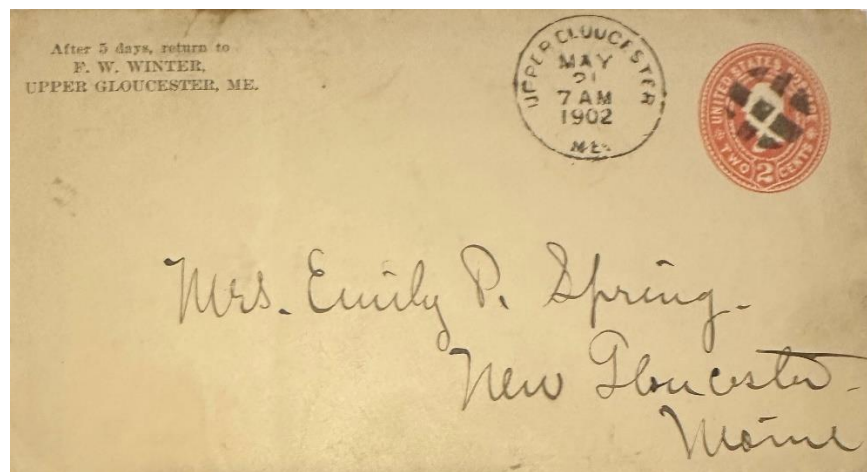 After 5 days, return to
F. W. WINTER,
UPPER GLOUCESTER, ME.
UPPER GLOUCESTER
MAY
21
7 AM
1902
ME.
UNITED STATES POSTAGE
TWO 2 CENTS
Mrs. Emily P. Spring.
New Gloucester.
Maine